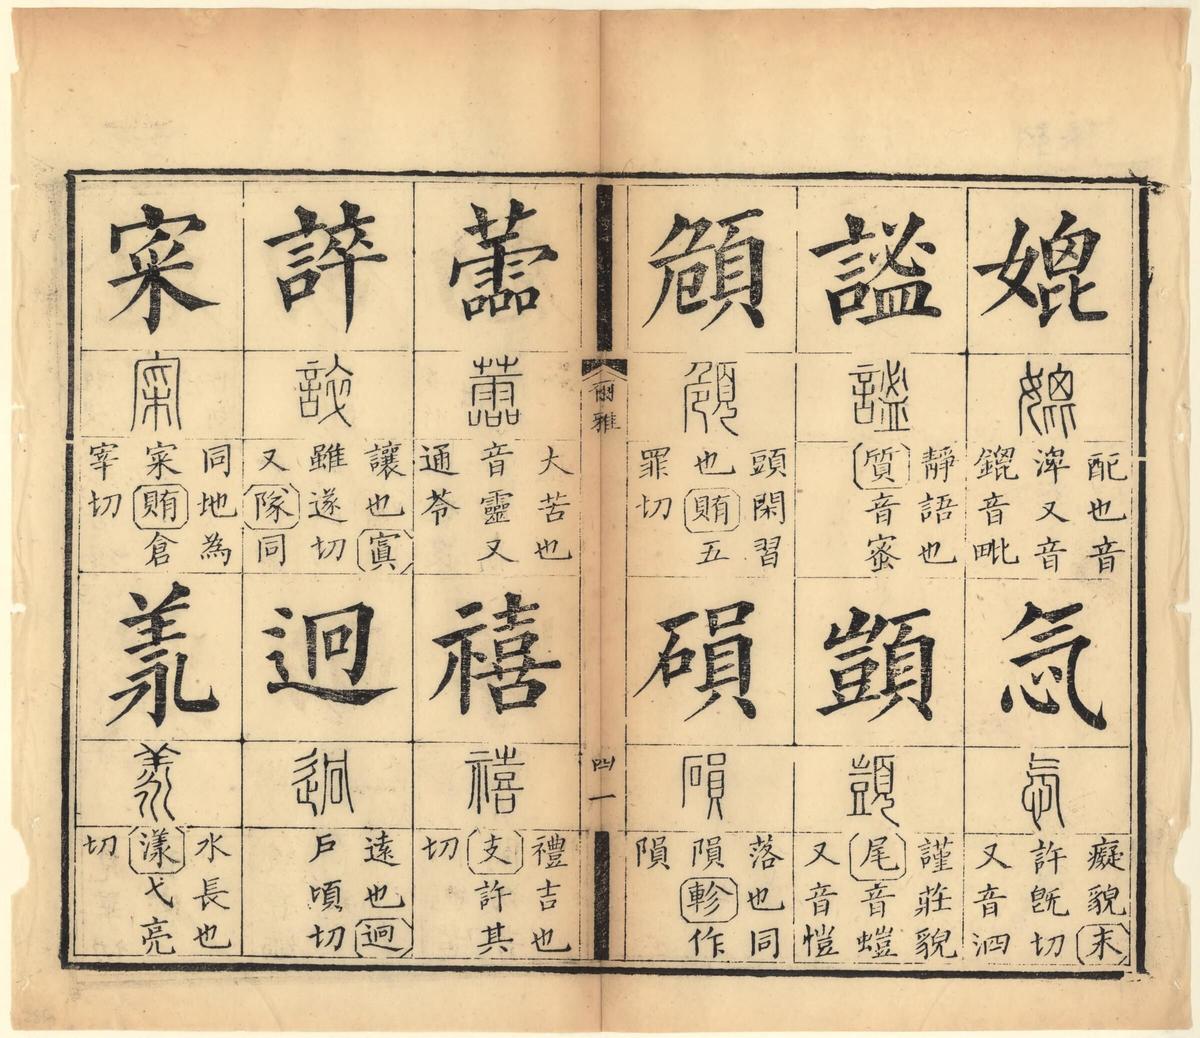 媲
媲
配也音
渒又音
鎞音毗
忥
忥
癡貌未
許旣切
又音泗
謐
謐
靜語也
質音蜜
顗
顗
謹莊貌
尾音螘
又音愷
頠
頠
頭閑習
也賄五
罪切
磒
磒
落也同
隕軫作
隕
爾雅
四一
蘦
蘦
大苦也
音靈又
通苓
禧
禧
禮吉也
支許其
切
誶
誶
讓也寘
雖遂切
又隊同
迥
迥
遠也迥
戶頃切
寀
寀
同地為
寀賄倉
宰切
羕
羕
水長也
漾弋亮
切